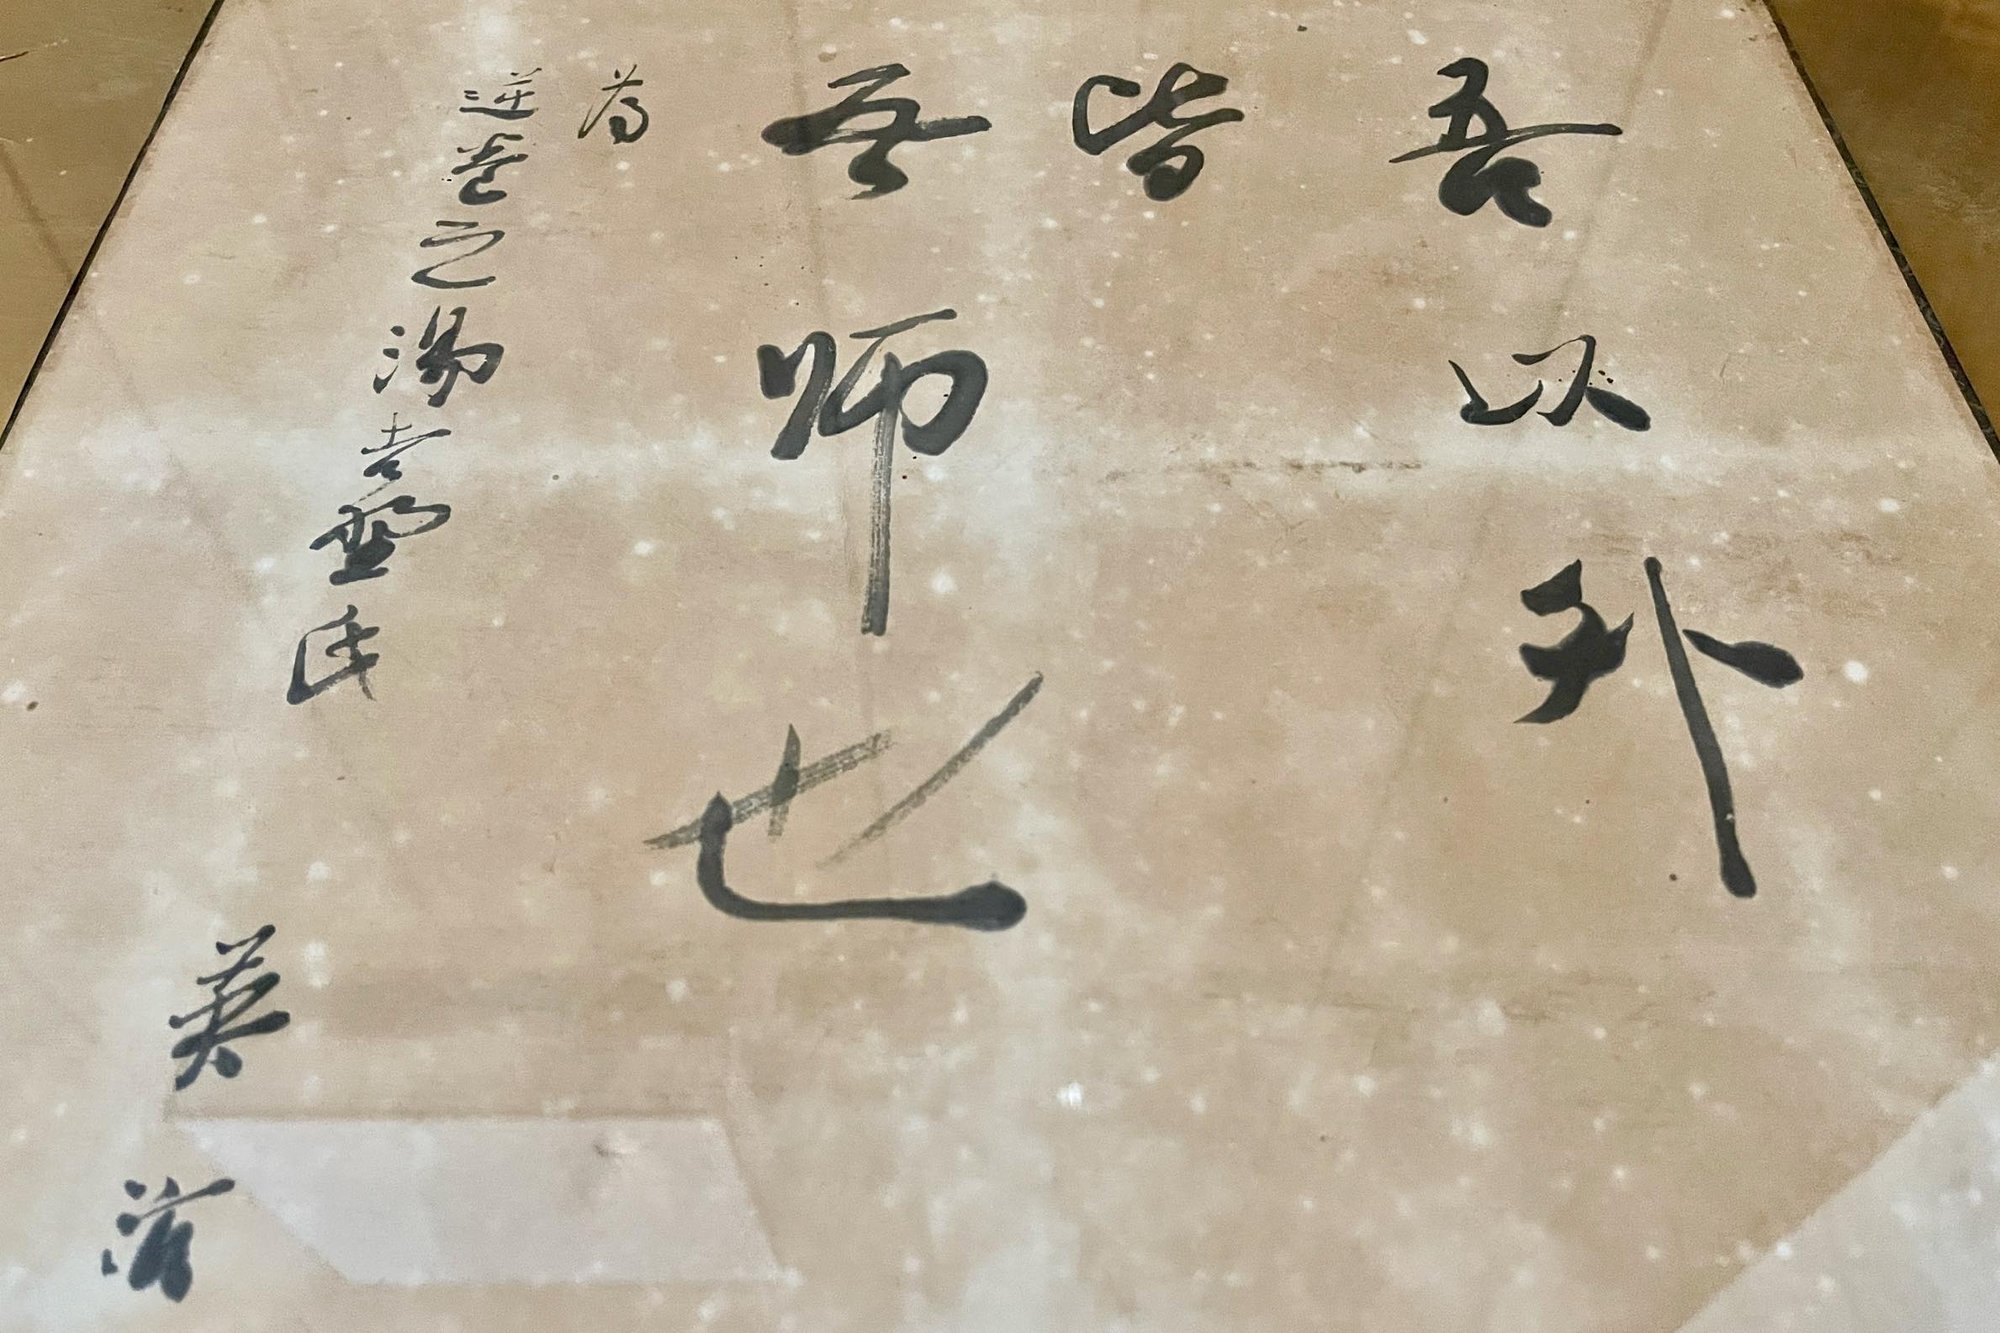 吾以外
皆
吾師也
為
逆巻之湯吉野氏
英治